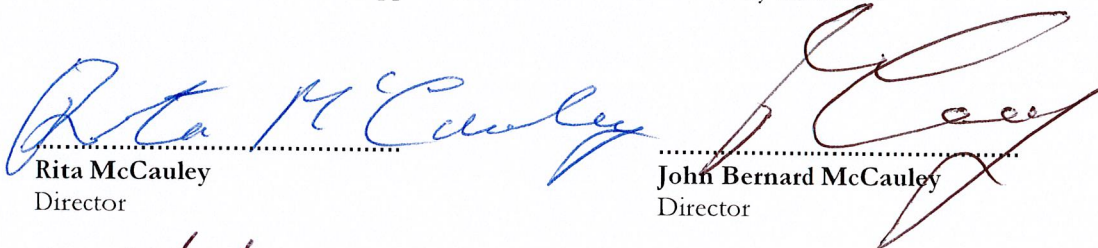 Rita McCauley
Rita McCauley
Director
John Bernard McCauley
Director